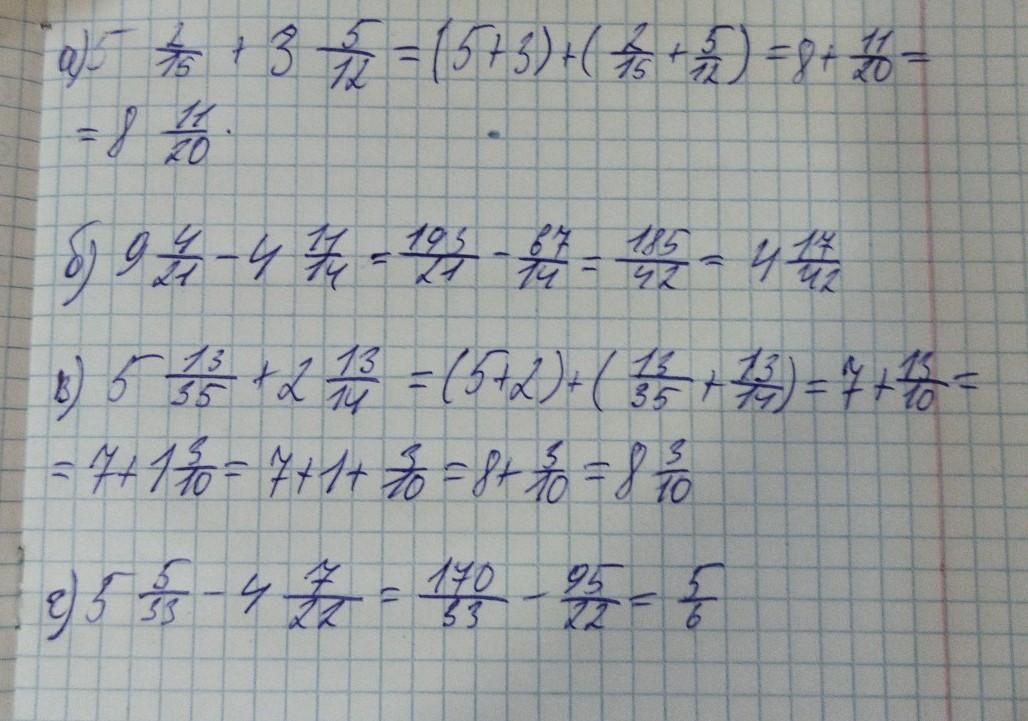 а) 5 2/15 + 3 5/12 = (5+3)+(2/15 + 5/12) = 8 + 11/20 =
= 8 11/20.
б) 9 4/21 - 4 11/14 = 193/21 - 67/14 = 185/42 = 4 17/42
в) 5 13/35 + 2 13/14 = (5+2)+(13/35 + 13/14) = 7 + 13/10 =
= 7+1 3/10 = 7+1+ 3/10 = 8+ 3/10 = 8 3/10
г) 5 5/33 - 4 7/22 = 170/33 - 95/22 = 5/6